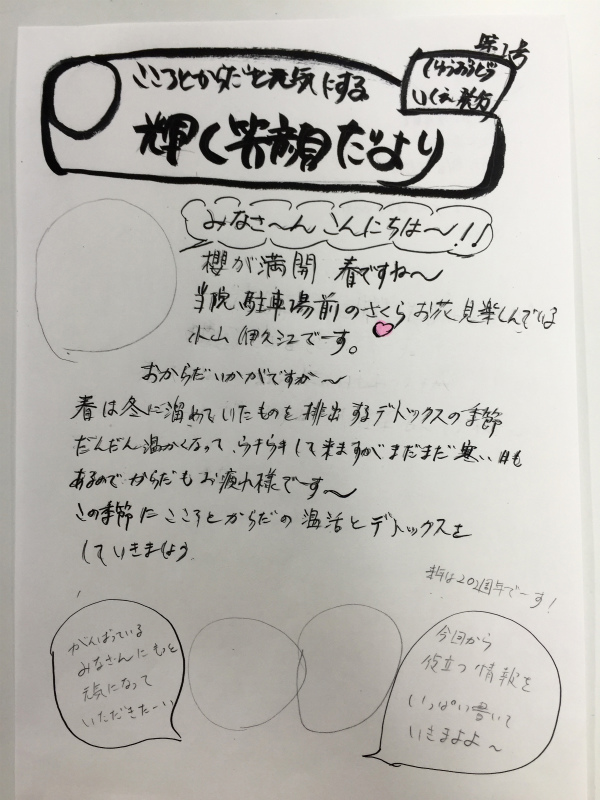 第1号
こころとからだを元気にする
輝く笑顔だより
いくえ 発行
みなさ〜ん こんにちは〜!!
櫻が満開 春ですね〜
当院駐車場前のさくら お花見楽しんでいる
小山伊久江でーす。
おからだいかがですか〜
春は冬に溜めていたものを排出するデトックスの季節
だんだん温かくなって、ウキウキして来ますがまだまだ寒い日も
あるので からだもお疲れ様でーす〜
この季節に こころとからだの温活とデトックスを
していきましょう
来年は20周年でーす!
がんばっている
みなさんにもっと
元気になって
いただきたーい
今回から
役立つ情報を
いっぱい書いて
いきますよ〜